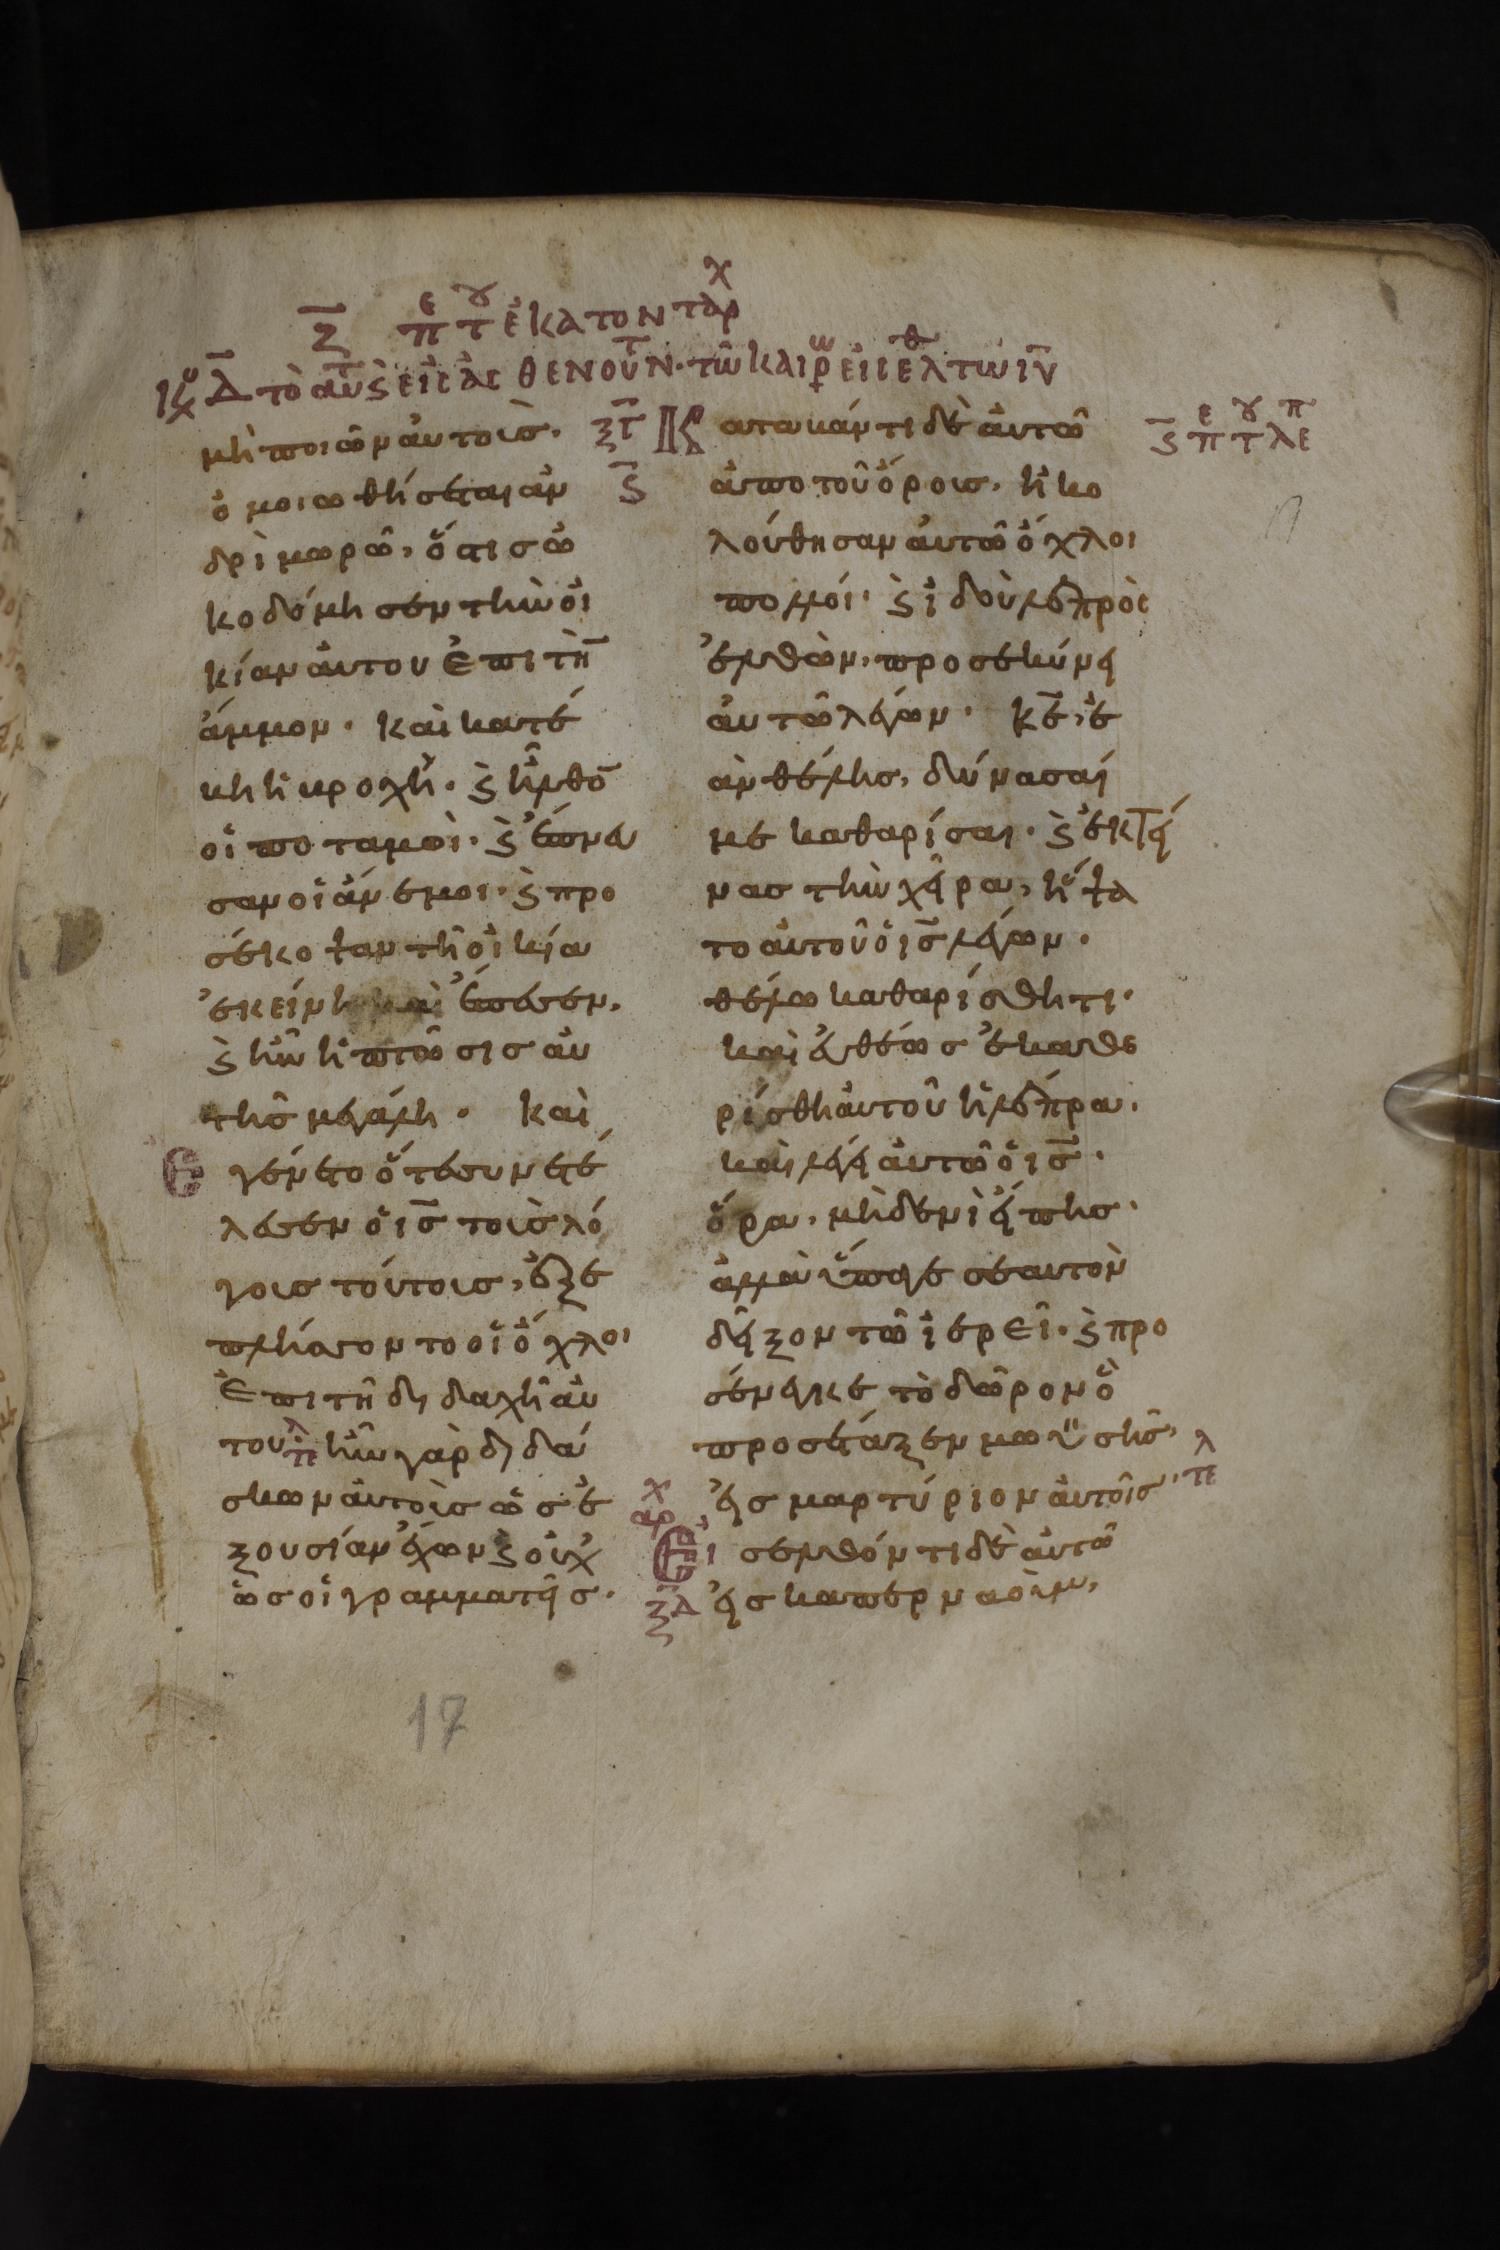 ζ πε του ἑκατοντάρχ
κυ δ τὸ αὐτ ϛ εἰς ἀσθενοῦντ. τῶ καιρω εἰσελθ τῶ ιν
μὴ ποιῶν αὐτοὺσ.
ὁμοιωθήσεται ἀν
δρὶ μωρῶ, ὅστισ ὠ
κοδόμησεν τὴν οἰ
κίαν αὐτου ἐπι τὴν
ἄμμον. καὶ κατέ
βη ἡ βροχὴ. ϛ ἦλθον
οἱ ποταμοὶ. ϛ ἔπνευ
σαν οἱ ἄνεμοι. ϛ προ
σέκοψαν τῆ οἰκία
ἐκείνη καὶ ἔπεσεν.
ϛ ἦν ἡ πτῶσισ αὐ
τῆσ μεγάλη. καὶ
Ἐγένετο ὅτε συνετέ
λεσεν ὁ ισ τοὺσ λό
γουσ τούτουσ, ἐξε
πλήσσοντο οἱ ὄχλοι
ἐπι τῆ διδαχῆ αὐ
του τελ ἦν γὰρ διδά
σκων αὐτοὺσ ὡσ ἐ
ξουσίαν ἔχων ϛ οὐχ
ὡσ οἱ γραμματεῖσ.
ξγ Καταβάντι δὲ αὐτῶ
ϛ πε του λεπ
ϛ ἀπο τοῦ ὄρουσ, ἠκο
λούθησαν αὐτῶ ὄχλοι
πολλοί. ϛ ἰδοὺ λεπρὸς
ἐλθὼν, προσεκύνει
αὐτῶ λέγων. κε, ἐ
ὰν θέλησ, δύνασαί
με καθαρίσαι. ϛ ἐκτεί
νασ τὴν χεῖρα, ἥψα
το αὐτοῦ ὁ ισ λέγων.
θέλω καθαρίσθητι.
καὶ εὐθέωσ ἐκαθε
ρίσθη αὐτοῦ ἡ λέπρα.
καὶ λέγει αὐτῶ ὁ ισ.
ὅρα, μὴδενὶ εἴπησ.
ἀλλὰ ὕπαγε σεαυτὸν
δεῖξον τῶ ἱερεῖ. ϛ προ
σένεγκε τὸ δῶρον ὃ
προσέταξεν μωϋσῆσ,
εἰσ μαρτύριον αὐτοῖσ. τελ
αρχ Εἰσελθόντι δὲ αὐτῶ
ξδ ζ εἰσ καπερναοὺμ,
17